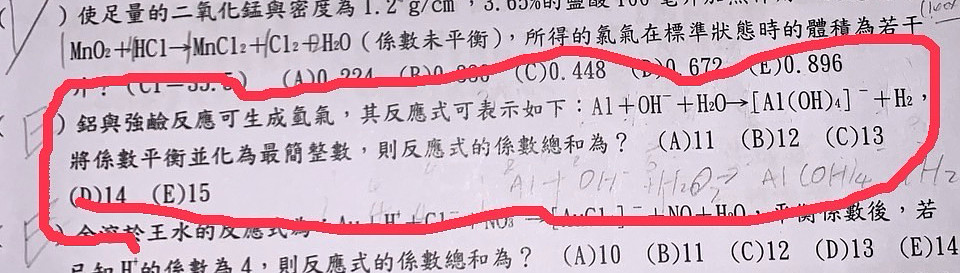 )使足量的二氧化錳與密度為1.2 g/cm , 3.65%的鹽酸100毫升加
MnO2+HCl→MnCl2+Cl2+H2O(係數未平衡),所得的氯氣在標準狀態時的體積為若干
(Cl=35.5) (A)0.224 (B)0. (C)0.448 (D)0.672 (E)0.896
E )鋁與強鹼反應可生成氫氣,其反應式可表示如下:Al+OH⁻+H2O→[Al(OH)4]⁻+H2,
將係數平衡並化為最簡整數,則反應式的係數總和為? (A)11 (B)12 (C)13
Al + OH⁻ + H2O → Al(OH)4 H2
(D)14 (E)15
E )金溶於王水的反應式為:Au+H⁺+Cl⁻+NO3⁻→[AuCl4]⁻+NO+H2O,平衡係數後,若
已知H⁺的係數為4,則反應式的係數總和為? (A)10 (B)11 (C)12 (D)13 (E)14